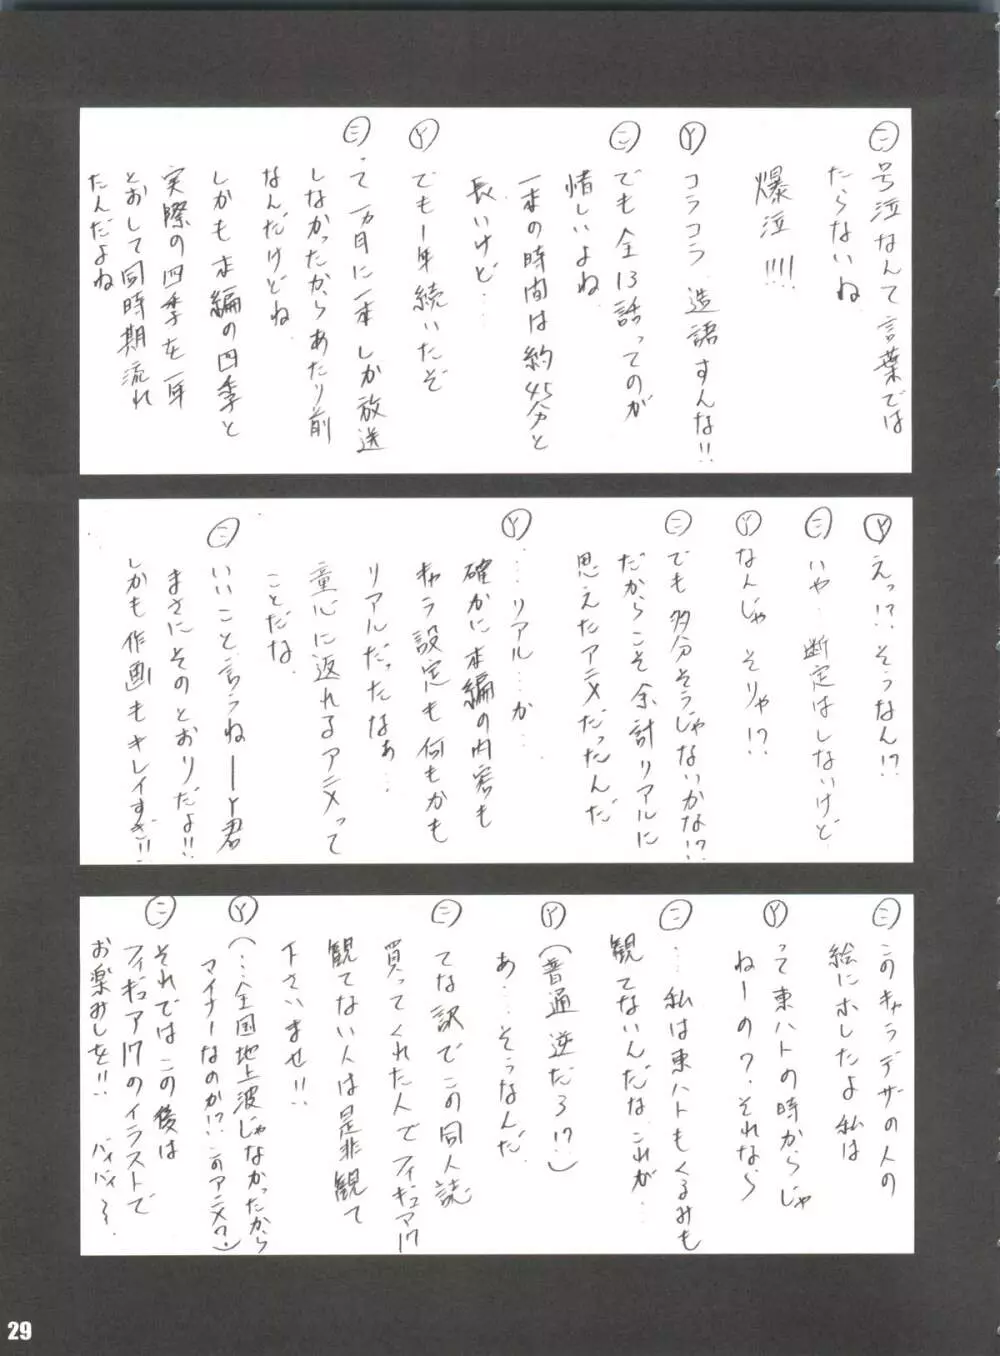 ㊁号泣なんて言葉では
たらないね
爆泣!!!!
Ⓨコラコラ、造語すんな!!
㊁でも全13話ってのが
惜しいよね
一本の時間は約45分と
長いけど…
Ⓨでも1年続いたぞ
㊁・て一カ月に一本しか放送
しなかったからあたり前
なんだけどね
しかも本編の四季と
実際の四季を一年
とおして同時期流れ
たんだよね
Ⓨえっ!?そうなん!?
㊁いや、断定はしないけど
Ⓨなんじゃそりゃ!?
㊁でも多分そうじゃないかな!?
だからこそ余計リアルに
思えたアニメだったんだ
Ⓨ…リアル…か
確かに本編の内容も
キャラ設定も何もかも
リアルだったなぁ…
童心に返れるアニメって
ことだな
㊁いいこと言うねーY君
まさにそのとおりだよ!!
しかも作画もキレイすぎ!!
㊁このキャラデザの人の
絵にホレたよ私は
Ⓨって東ハトの時からじゃ
ねーの?それなら
㊁…私は東ハトもくるみも
観てないんだな、これが…
Ⓨ(普通逆だろ!?)
あ…そうなんだ
㊁てな訳でこの同人誌
買ってくれた人でフィギュア17
観てない人は是非観て
下さいませ!!
Ⓨ(…全国地上波じゃなかったから
マイナーなのか!?このアニメ?)
㊁それではこの後は
フィギュア17のイラストで
お楽みしを!! バイバイ～
29